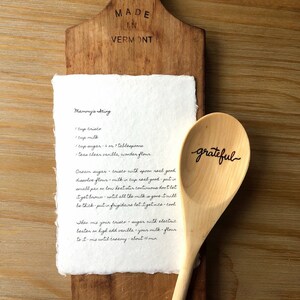 MADE
IN
VERMONT
grateful
Mammy's icing
1 cup crisco
1 cup milk
1 cup sugar
vanilla, wonder flour
Cream sugar + crisco with spoon real good
dissolve flour + milk in cup real good - put in
small pan on low heat stir continuous don't let
it get brown - until all the milk is gone it will
be thick - put in frigidaire let it get nice + cool
when mix your crisco + sugar with electric
beater on high add vanilla + your milk + flour
to it - mix until creamy - about